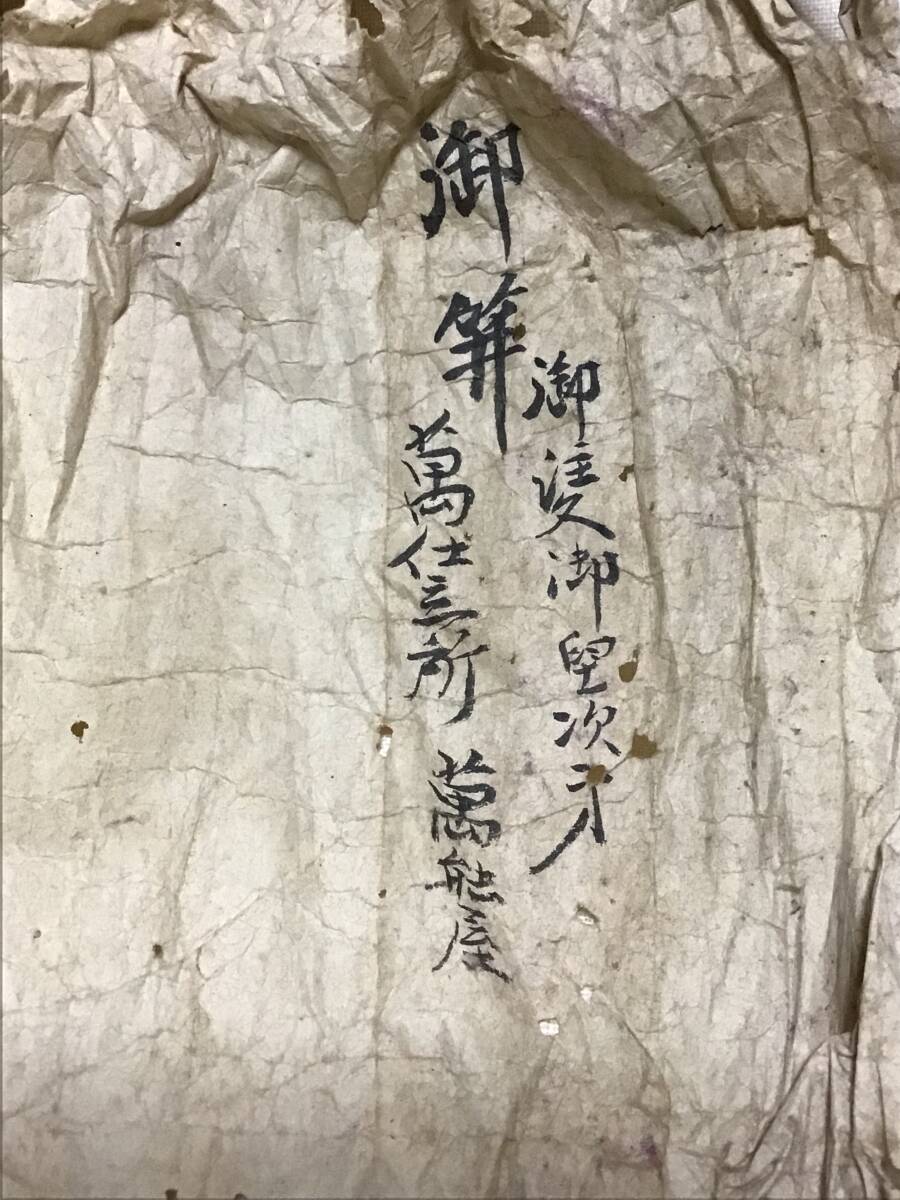 御笄
御御望次才
萬仕立所 萬能屋